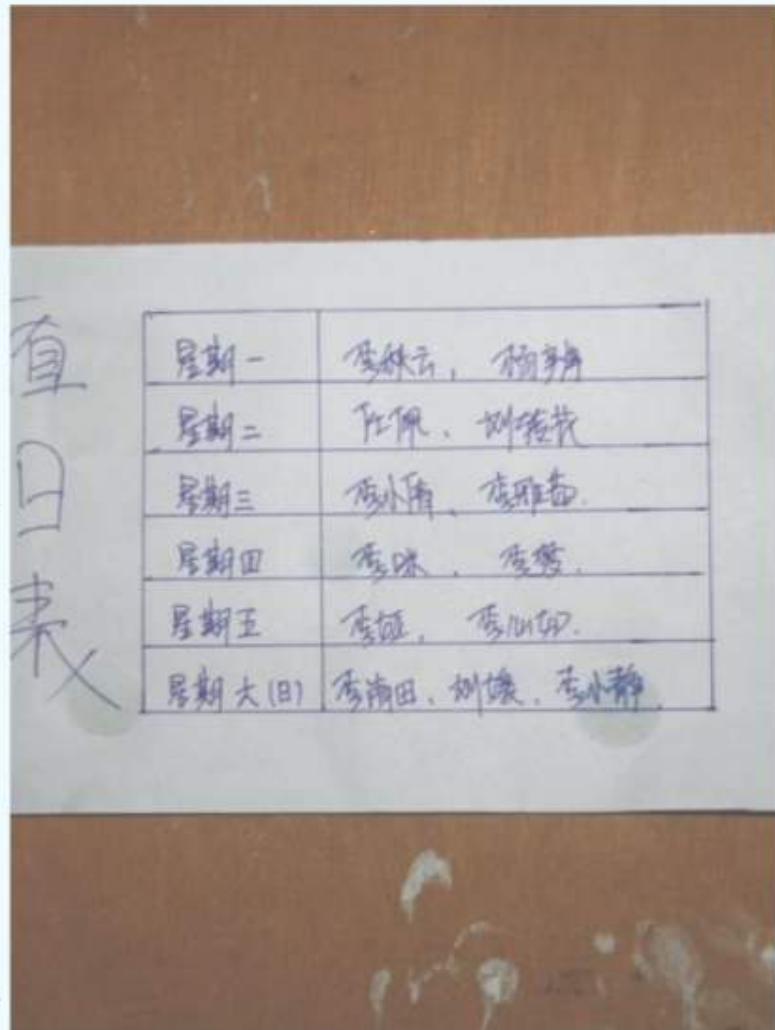 值日表
星期一 李秋云、杨
星期二 任佩、刘
星期三 李小倩、李雅茹.
星期四 李咪、李
星期五 李娅、李
星期六(日) 李倩田、刘媛、李小静.